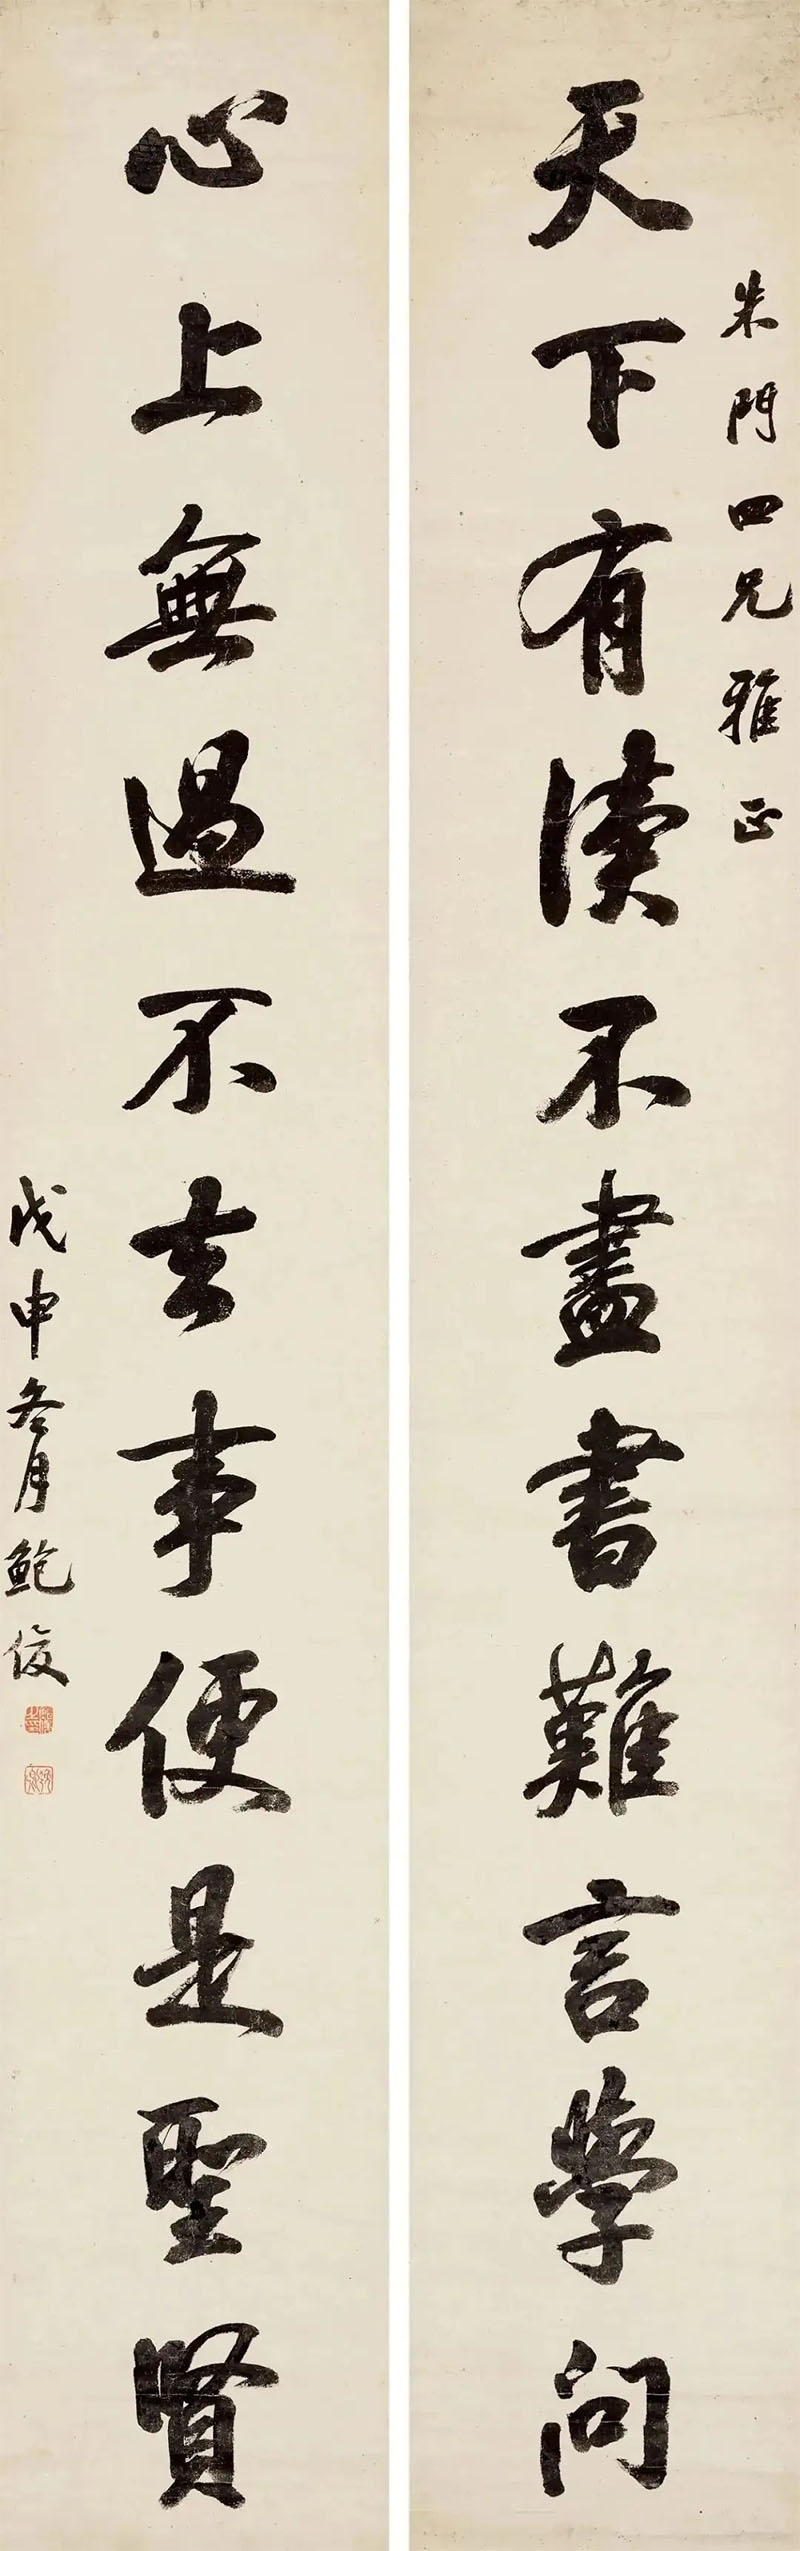 朱門四兄雅正
天下有讀不盡書難言學問
心上無過不去事便是聖賢
戊申冬月鮑俊